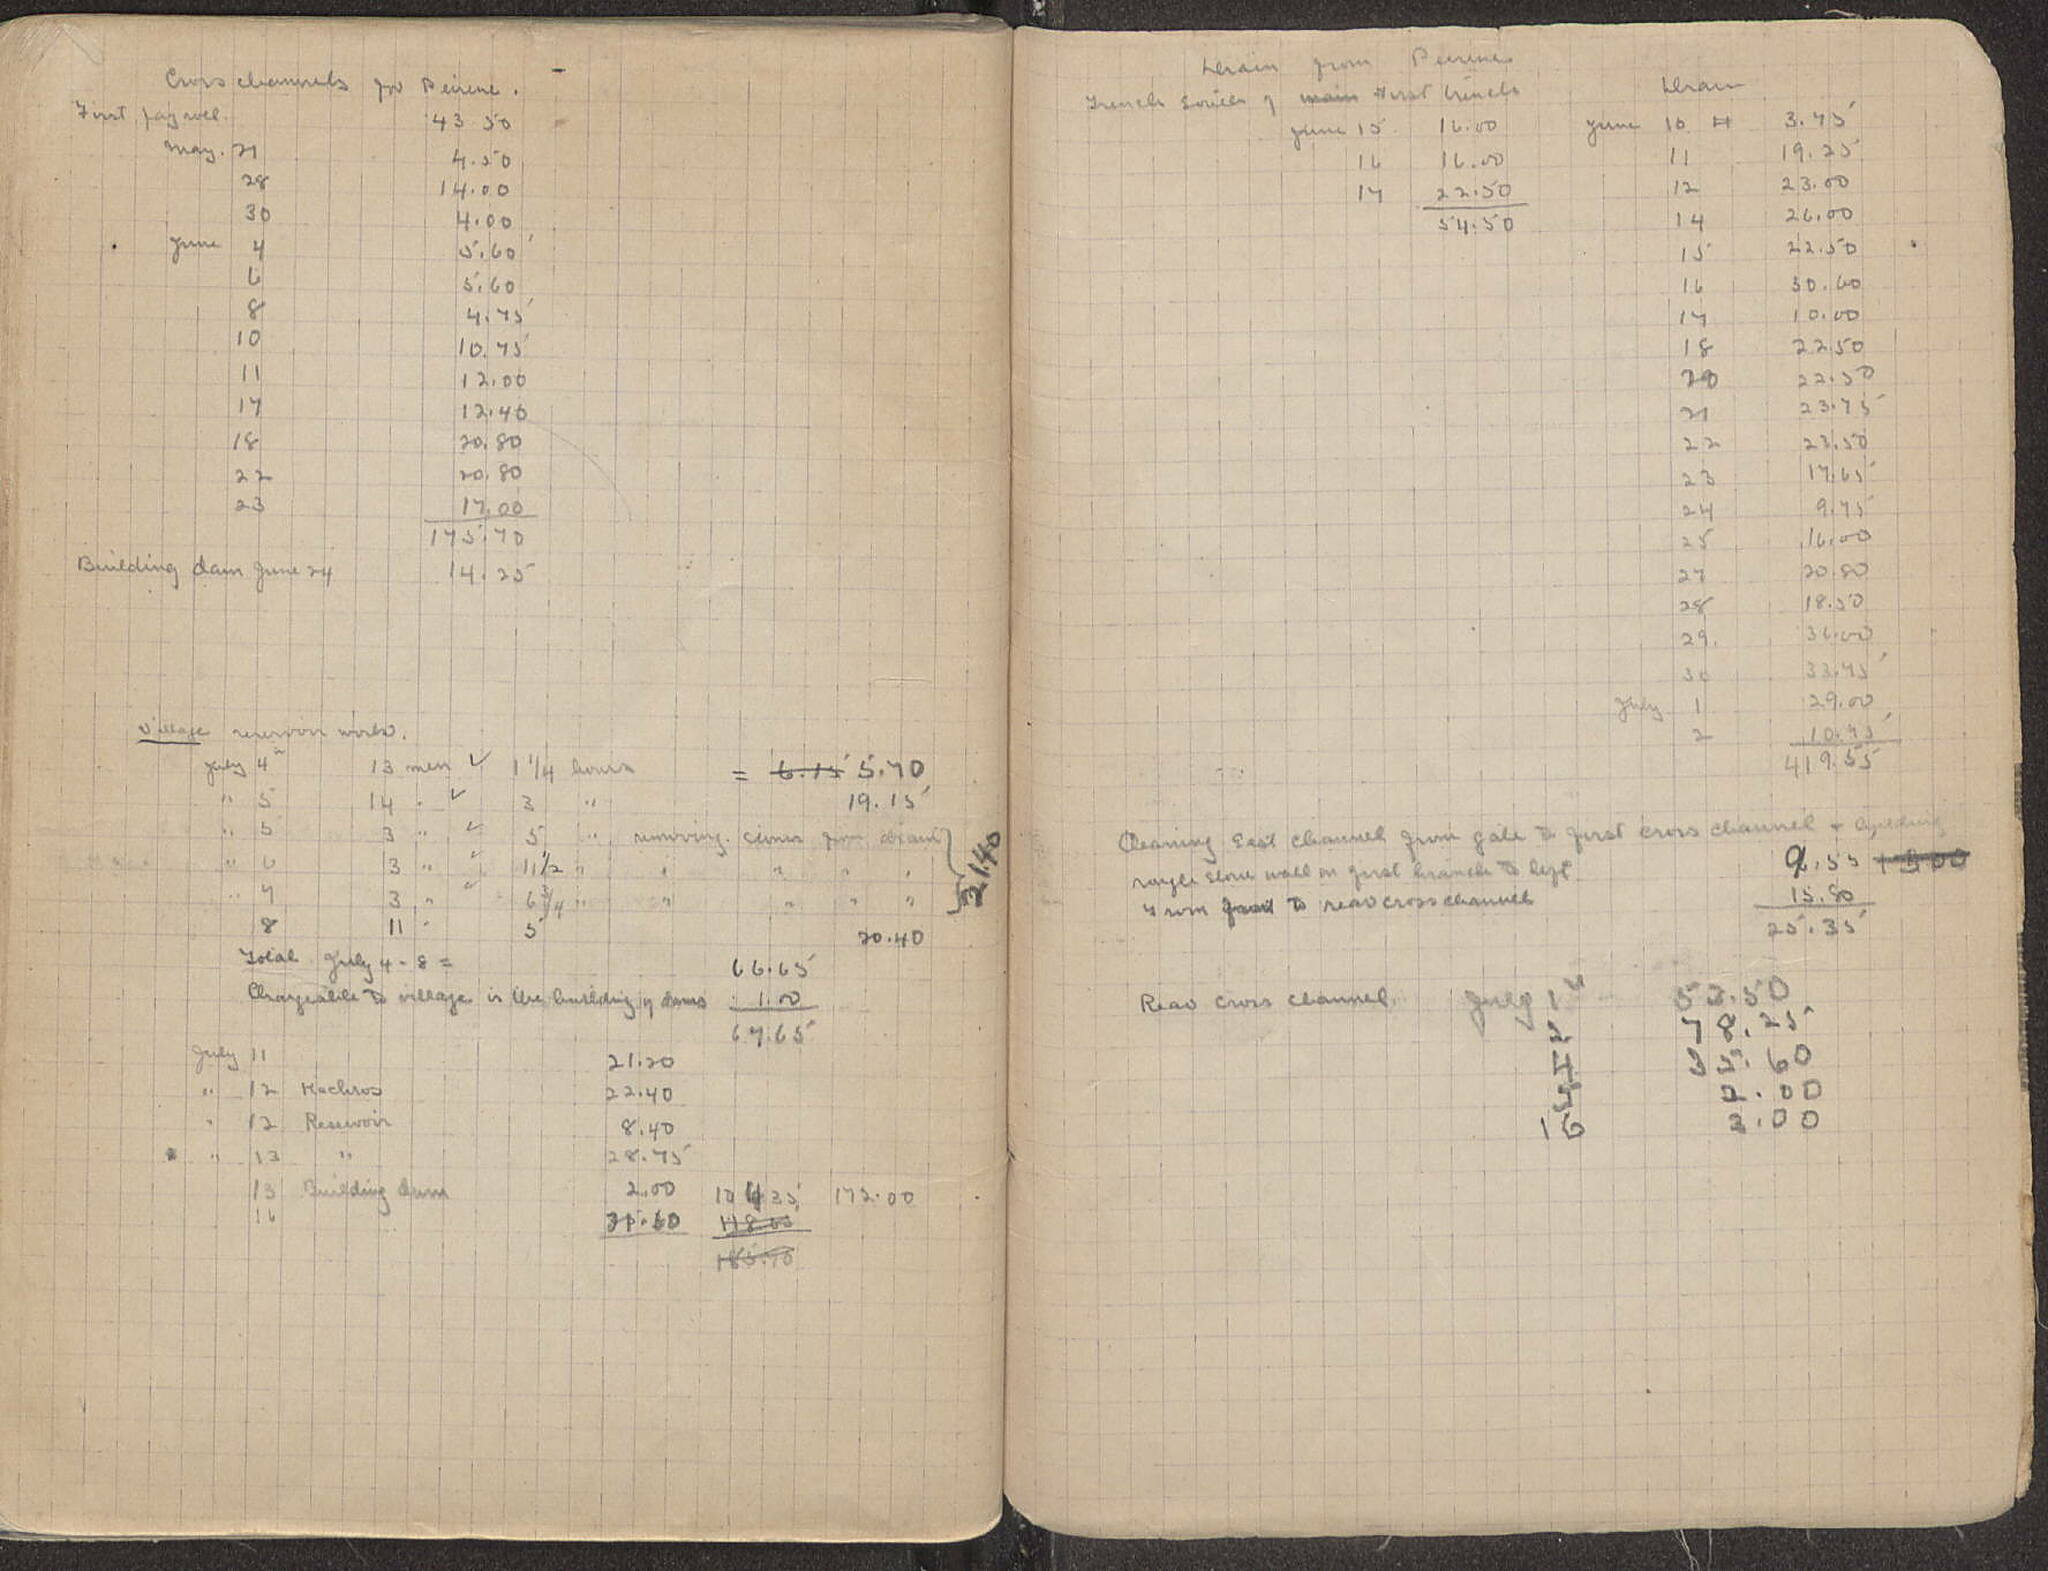 Cross channels for Peirene.
First pay roll. 43 50
May. 21 4.50
28 14.00
30 4.00
June 4 5.60
6 5.60
8 4.75
10 10.75
11 12.00
17 12.40
18 20.80
22 20.80
23 17.00
175.70
Building dam June 24 14.25
Village reservoir work.
July 4 13 men ✓ 1 1/4 hours = 6.15 5.70
" 5 14 " ✓ 3 " 19.15
" 5 3 " ✓ 5 " removing stones from drain
" 6 3 " ✓ 11 1/2 " " " " "
" 7 3 " ✓ 6 3/4 " " " " "
21.40
8 11 " 5 20.40
Total July 4-8 = 66.65
Chargeable to village is the building of dams 1.00
67.65
July 11 21.20
" 12 Hochros 22.40
" 12 Resevoir 8.40
" 13 " 28.75
13 Building dam 2.00 104.35 172.00
16 21.60 118.00
185.70
Drain from Peirene
Trench South of main First trench
June 15 16.00
16 16.00
17 22.50
54.50
Drain
June 10 3.75
11 19.25
12 23.00
14 26.00
15 22.50
16 30.60
17 10.00
18 22.50
20 22.50
21 23.75
22 23.50
23 17.65
24 9.75
25 16.00
27 20.80
28 18.50
29. 36.00
30 33.75
July 1 29.00
2 10.75
419.55
Cleaning East channel from gate to first cross channel + building
rough stone wall in first branch to left 9.55 + 3.00
From to rear cross channel 15.80
25.35
Rear cross channel. July 1st 53.50
2 78.25
55.60
2.00
2.00